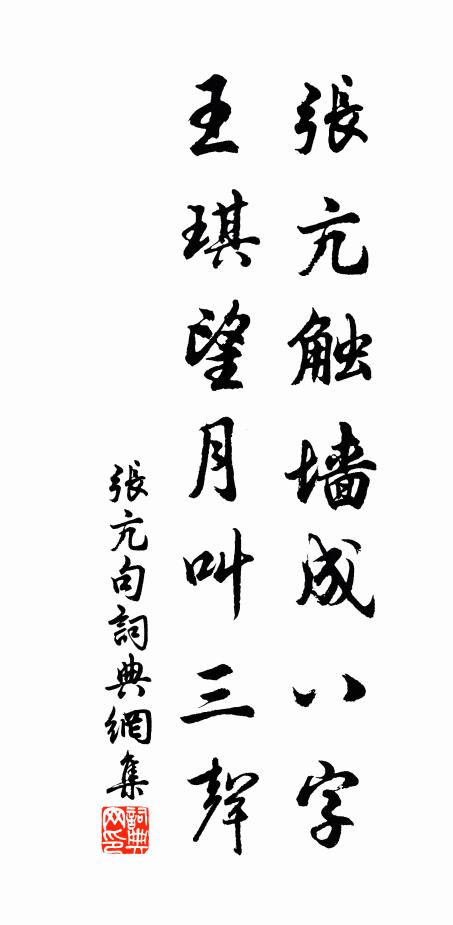 張亢触墙成八字
王琪望月叫三聲
張亢句詞典網集
詞典
网印